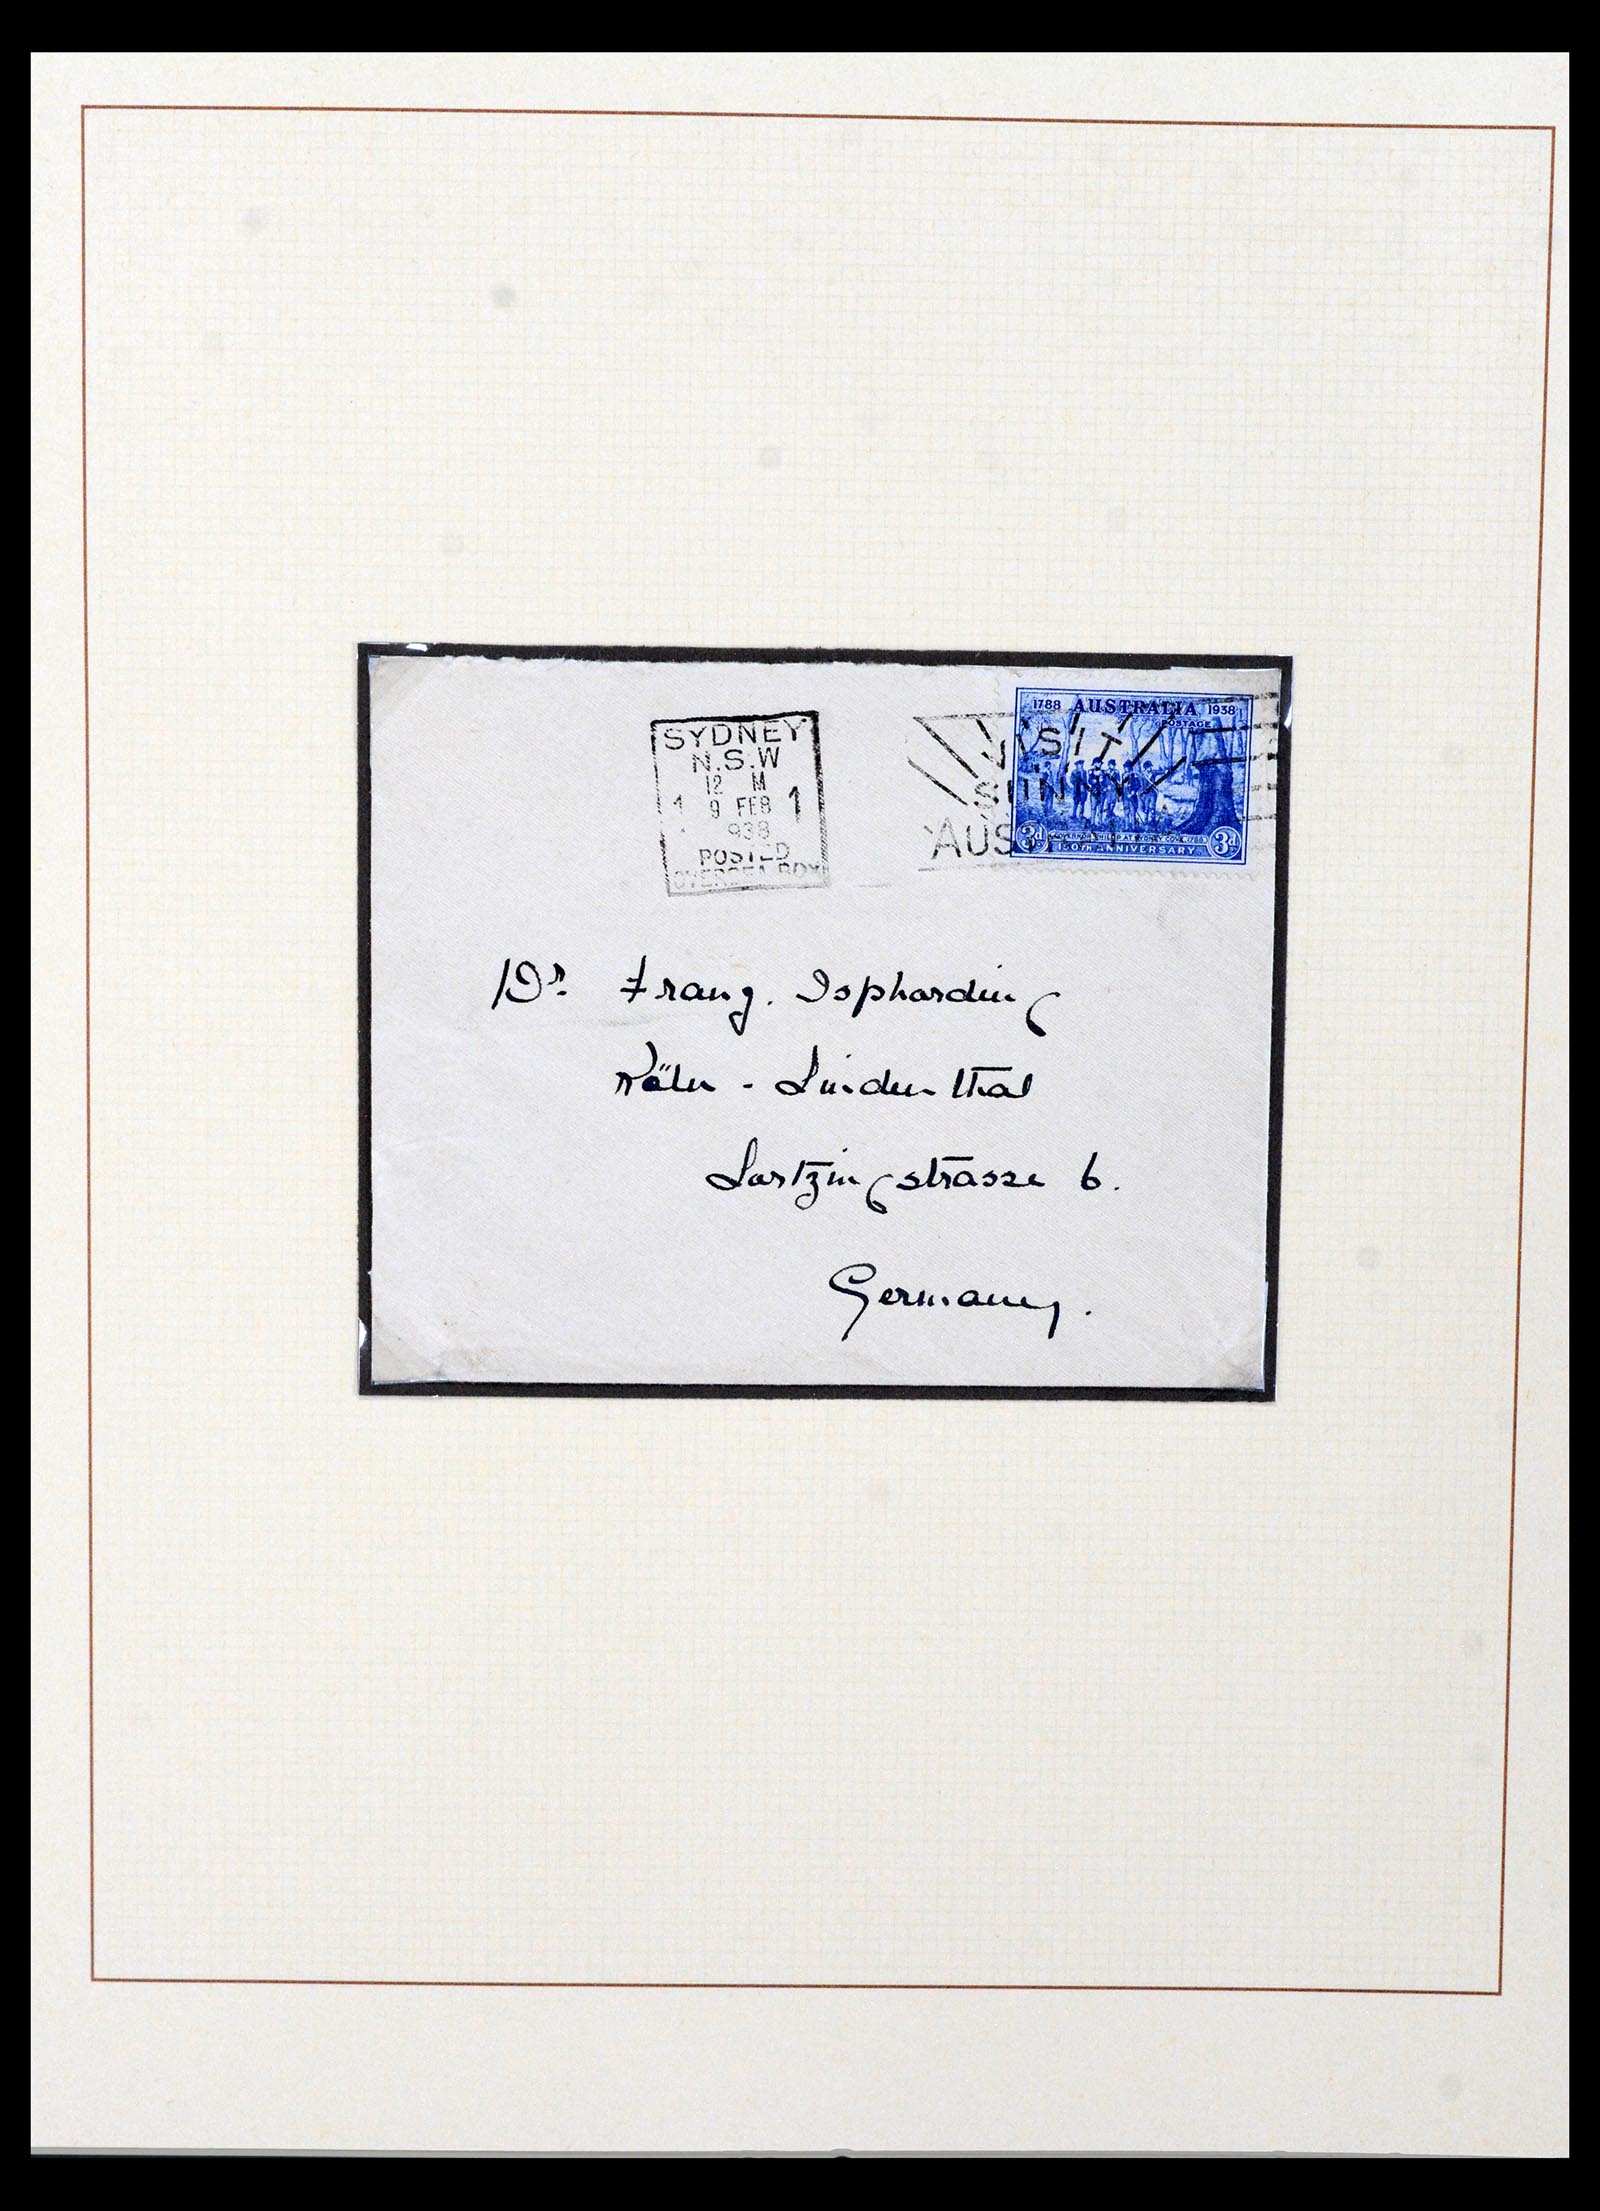 SYDNEY
N.S.W
12 M
1 9 FEB 1
938
POSTED
OVERSEA BOX
VISIT
SUNNY
AUSTRALIA
1788 AUSTRALIA 1938
POSTAGE
3d GOVERNOR PHILLIP AT SYDNEY COVE, 1788 3d
150TH ANNIVERSARY
Dr. Franz. Ispharding
Köln - Lindenthal
Lortzingstrasse 6.
Germany.